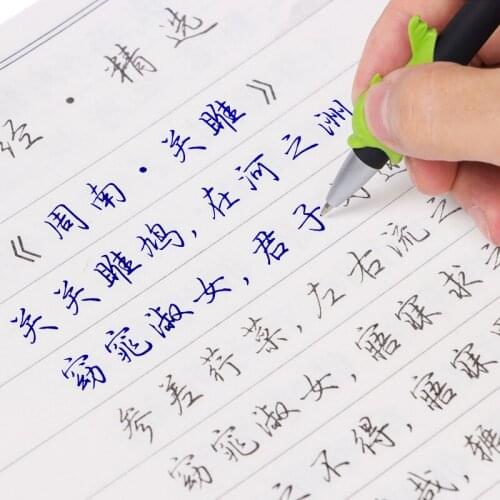 经·精选
《周南·关雎》
关关雎鸠,在河之洲
窈窕淑女,君子
参差荇菜,左右流之
窈窕淑女,寤寐求
之不得,寤寐
哉,辗